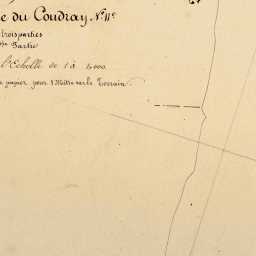 e du Coudray. N.º 11.e
trois parties
Partie
l'Echelle de 1 à 2000
papier pour 1 Mètre sur le Terrain.